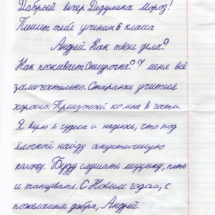 Добрый вечер Дедушка Мороз!
Пишет тебе ученик 6 класса
Андрей. Как твои дела?
Как поживает Снегурочка? У меня всё
замечательно. Стараюсь учиться
хорошо. Приезжай ко мне в гости.
Я верю в чудеса и надеюсь, что под
ёлочкой найду акустическую
колонку. Буду слушать музыку, петь
и танцевать. С Новым годом, с
пожеланием добра, Андрей.